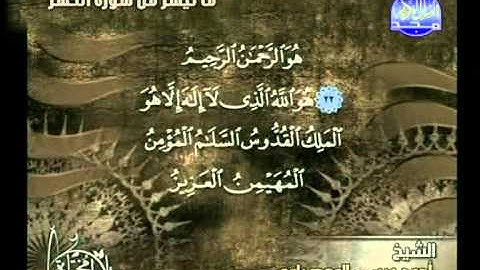 ما تيسر من سورة الحشر
المجد
هُوَ ٱلرَّحْمَٰنُ ٱلرَّحِيمُ
٢٢ هُوَ ٱللَّهُ ٱلَّذِى لَآ إِلَٰهَ إِلَّا هُوَ
ٱلْمَلِكُ ٱلْقُدُّوسُ ٱلسَّلَٰمُ ٱلْمُؤْمِنُ
ٱلْمُهَيْمِنُ ٱلْعَزِيزُ
الشيخ